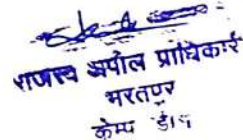 राजस्व अपील प्राधिकारी
भरतपुर
केम्प डीग